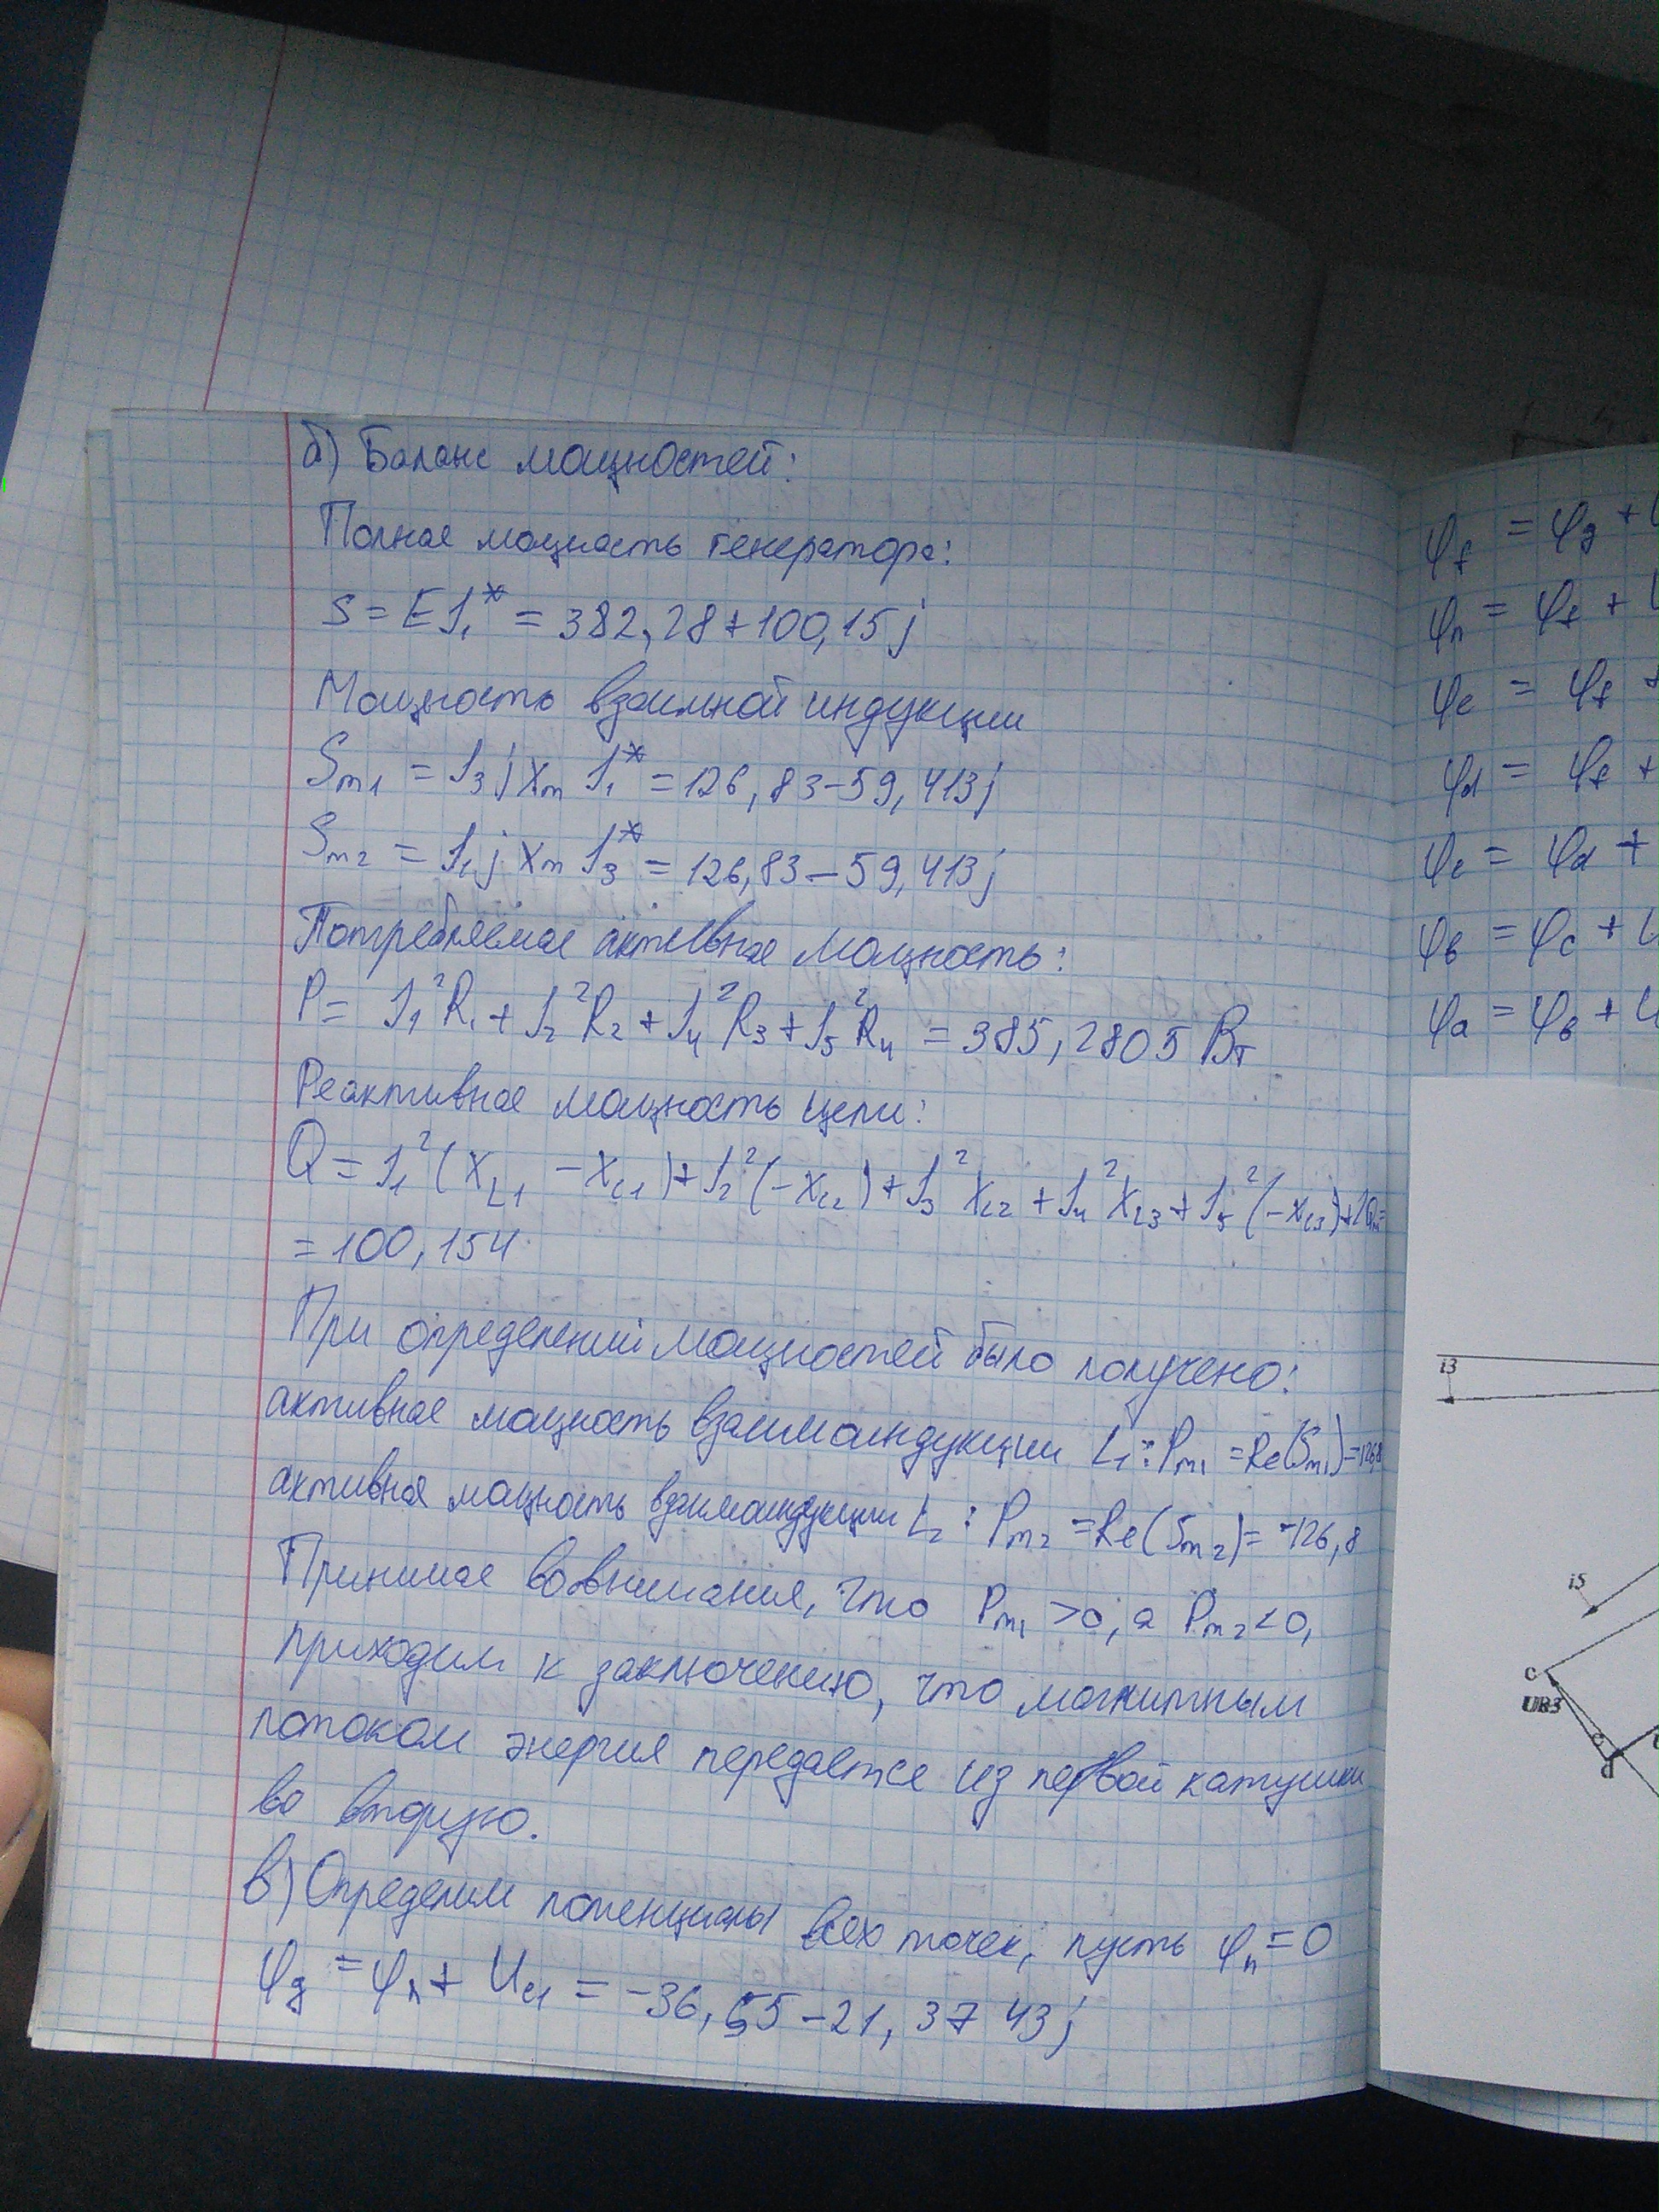 б) Баланс мощностей:
Полная мощность генератора:
S = E I₁* = 382,28+100,15j
Мощность взаимной индукции
Sm1 = I₃ j Xm I₁* = 126,83-59,413j
Sm2 = I₁ j Xm I₃* = 126,83-59,413j
Потребляемая активная мощность:
P = I₁²R₁ + I₂²R₂ + I₄²R₃ + I₅²R₄ = 385,2805 Вт
Реактивная мощность цепи:
Q = I₁²(XL1 - Xc1) + I₂²(-Xc2) + I₃²XL2 + I₄²XL3 + I₅²(-Xc3) + 2Qm =
= 100,154
При определении мощностей было получено:
активная мощность взаимоиндукции L₁: Pm1 = Re(Sm1) = 126,8
активная мощность взаимоиндукции L₂: Pm2 = Re(Sm2) = -126,8
Принимая во внимания, что Pm1 >0, а Pm2 <0,
приходим к заключению, что магнитным
потоком энергия передается из первой катушки
во вторую.
в) Определим потенциалы всех точек, пусть φn = 0
φg = φn + Uc1 = -36,55-21,3743j
φf = φg + U
φn = φf +
φe = φf +
φd = φf +
φc = φd +
φв = φc + U
φa = φв + U
i3
i5
c
UR3
e
d